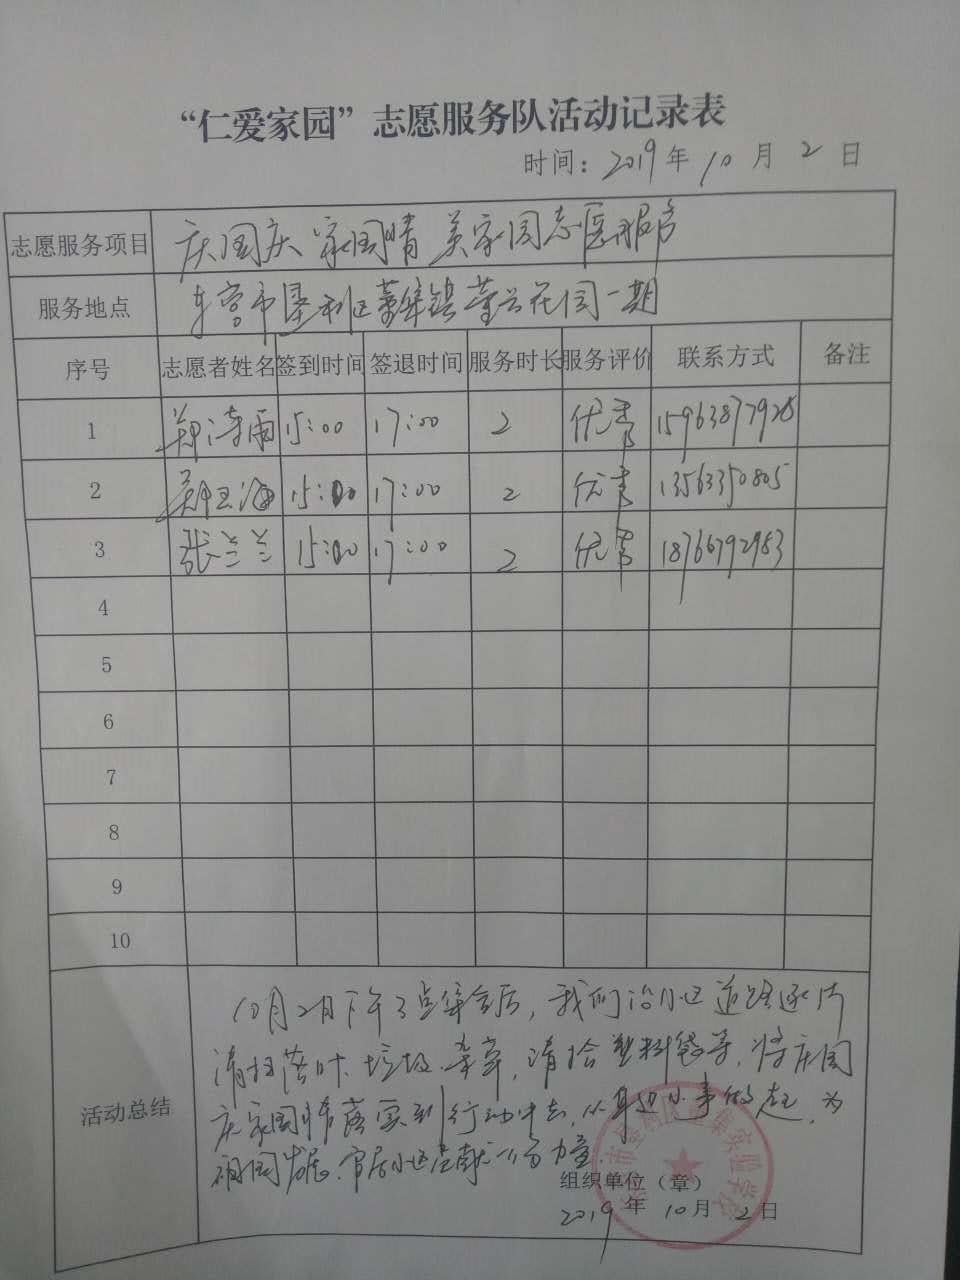 “仁爱家园”志愿服务队活动记录表
时间：2019年10月2日
志愿服务项目 庆国庆 家国情 美家园志愿服务
服务地点 东营市垦利区董集镇董兴花园一期
序号 志愿者姓名 签到时间 签退时间 服务时长 服务评价 联系方式 备注
1 郑涛雨 15:00 17:00 2 优秀 15963877928
2 郑玉海 15:00 17:00 2 优秀 13563350805
3 张兰兰 15:00 17:00 2 优秀 18766792983
4
5
6
7
8
9
10
活动总结
10月2日下午3点集合后，我们沿小区道路逐片
清扫落叶、垃圾、杂草，清捡塑料袋等，将庆国
庆家国情落实到行动中去，从身边小事做起，为
祖国发展、宜居小区贡献一份力量.
组织单位（章）
2019年10月2日
市垦利区董集实验学校